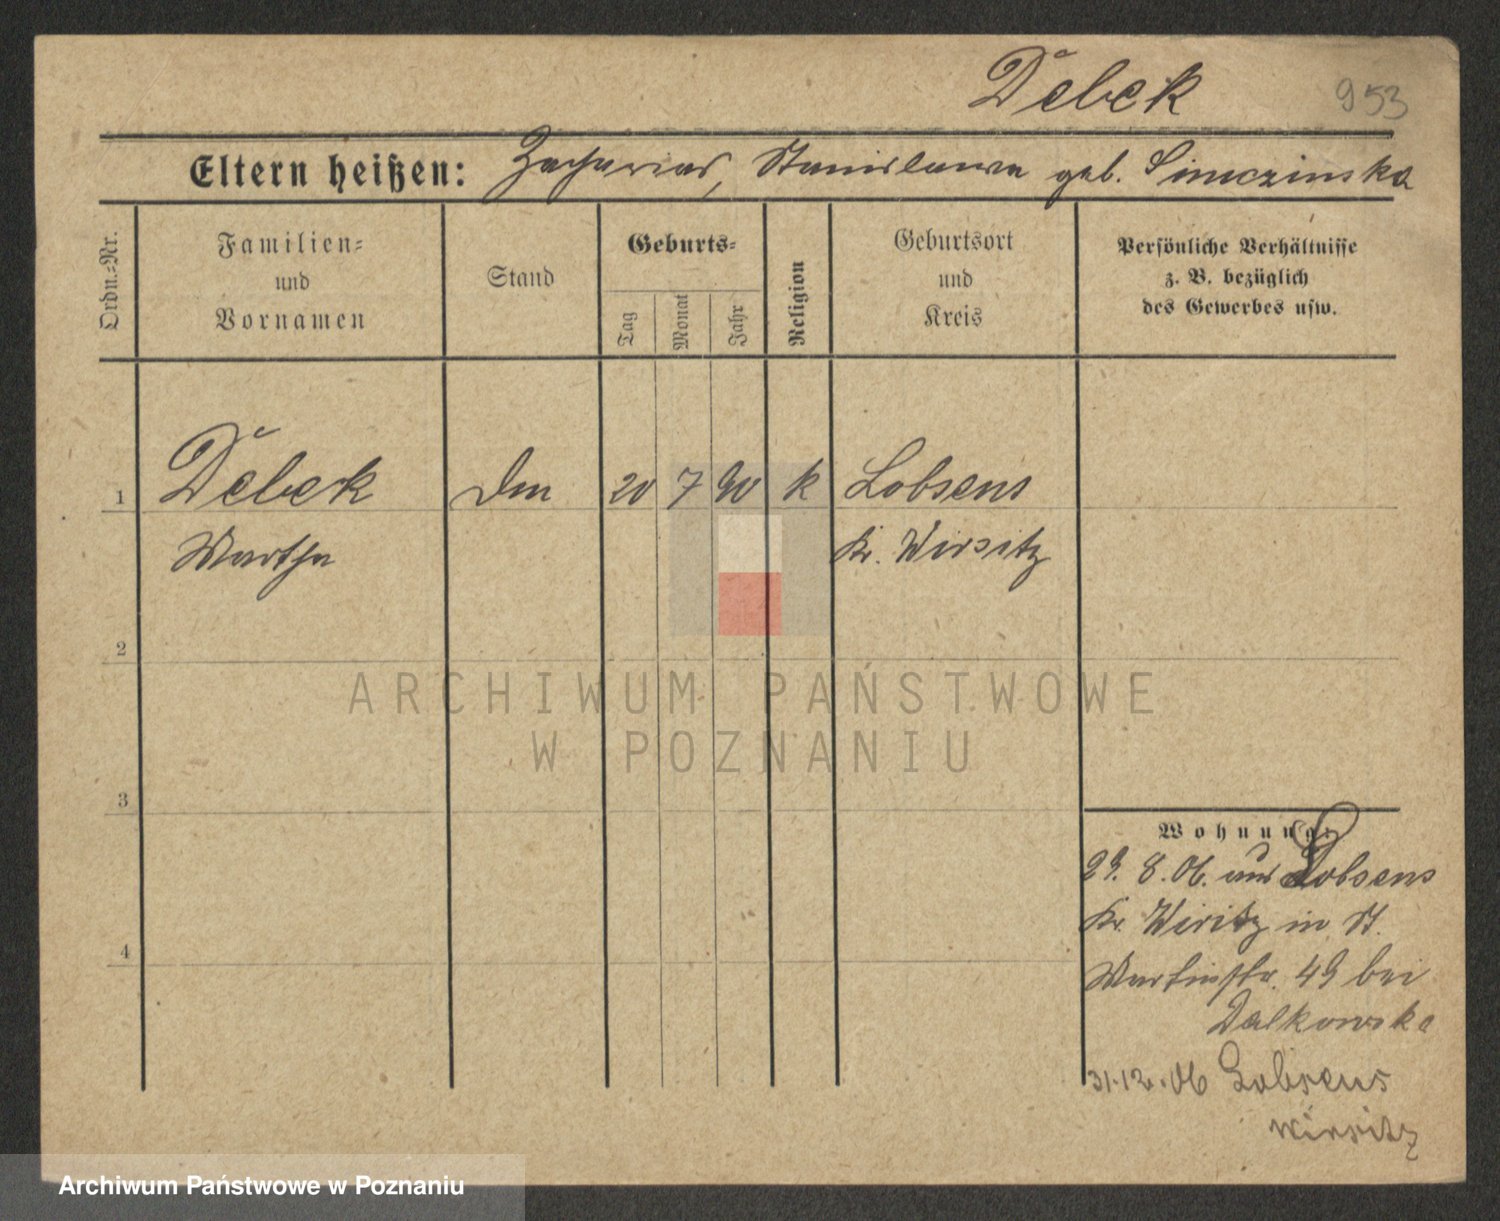 Debek 953
Eltern heißen: Zacharias, Stanislawa geb.
Ordn.-Nr.
Familien-
und
Vornamen
Stand
Geburts-
Tag
Monat
Jahr
Religion
Geburtsort
und
Kreis
Persönliche Verhältnisse
z. B. bezüglich
des Gewerbes usw.
1 Debek 20 7 90 k Lobsens
Martha Kr. Wirsitz
2
ARCHIWUM PAŃSTWOWE
W POZNANIU
3
Wohnung
29. 8. 06. aus Lobsens
Kr. Wiritz in St.
4
Martinstr. 49 bei
Dalkowska
31.12.06 Lobsens
Wirsitz
Archiwum Państwowe w Poznaniu